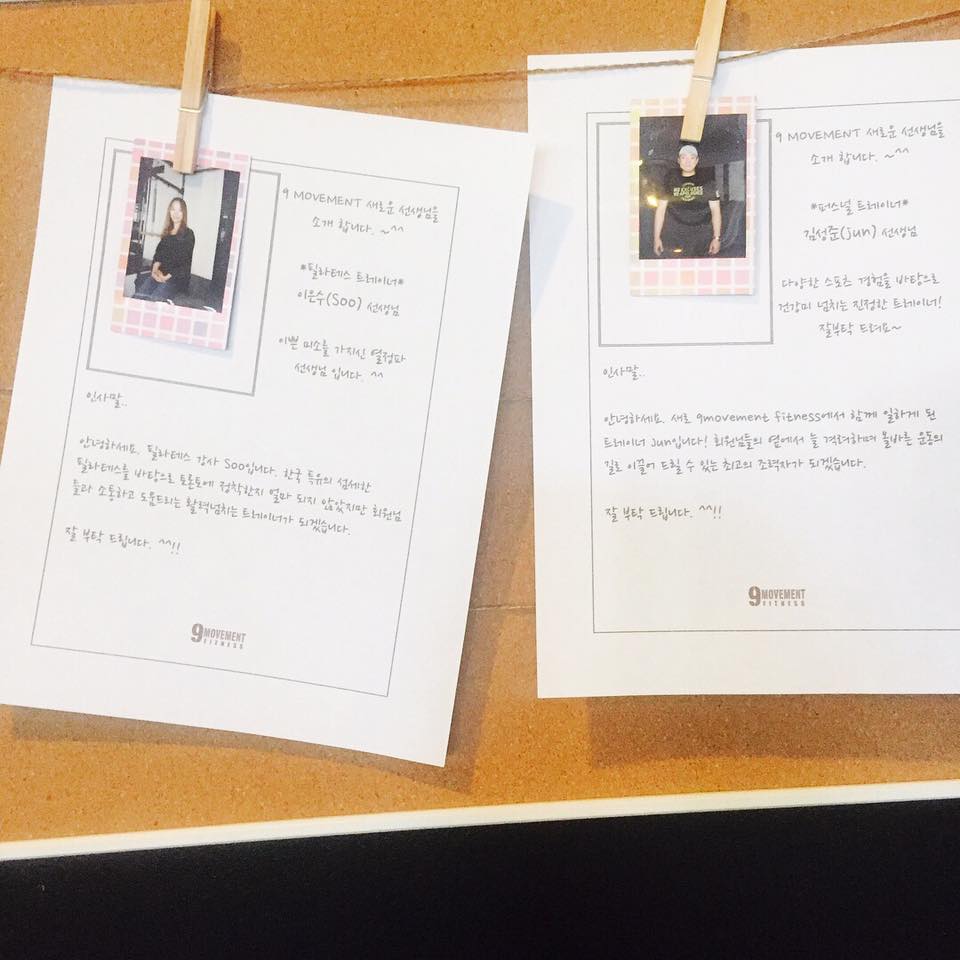 9 MOVEMENT 새로운 선생님을
소개 합니다. ~^^
*필라테스 트레이너*
이은수(Soo) 선생님
이쁜 미소를 가지신 열정파
선생님 입니다. ^^
인사말..
안녕하세요. 필라테스 강사 Soo입니다. 한국 특유의 섬세한
필라테스를 바탕으로 토론토에 정착한지 얼마 되지 않았지만 회원님
들과 소통하고 도움드리는 활력넘치는 트레이너가 되겠습니다.
잘 부탁 드립니다. ^^!!
9 MOVEMENT
FITNESS
9 MOVEMENT 새로운 선생님을
소개 합니다. ~^^
*퍼스널 트레이너*
김성준(Jun) 선생님
다양한 스포츠 경험을 바탕으로
건강미 넘치는 진정한 트레이너!
잘부탁 드려요~
인사말..
안녕하세요. 새로 9movement fitness에서 함께 일하게 된
트레이너 Jun입니다! 회원님들의 옆에서 늘 격려하며 올바른 운동의
길로 이끌어 드릴 수 있는 최고의 조력자가 되겠습니다.
잘 부탁 드립니다. ^^!!
9 MOVEMENT
FITNESS